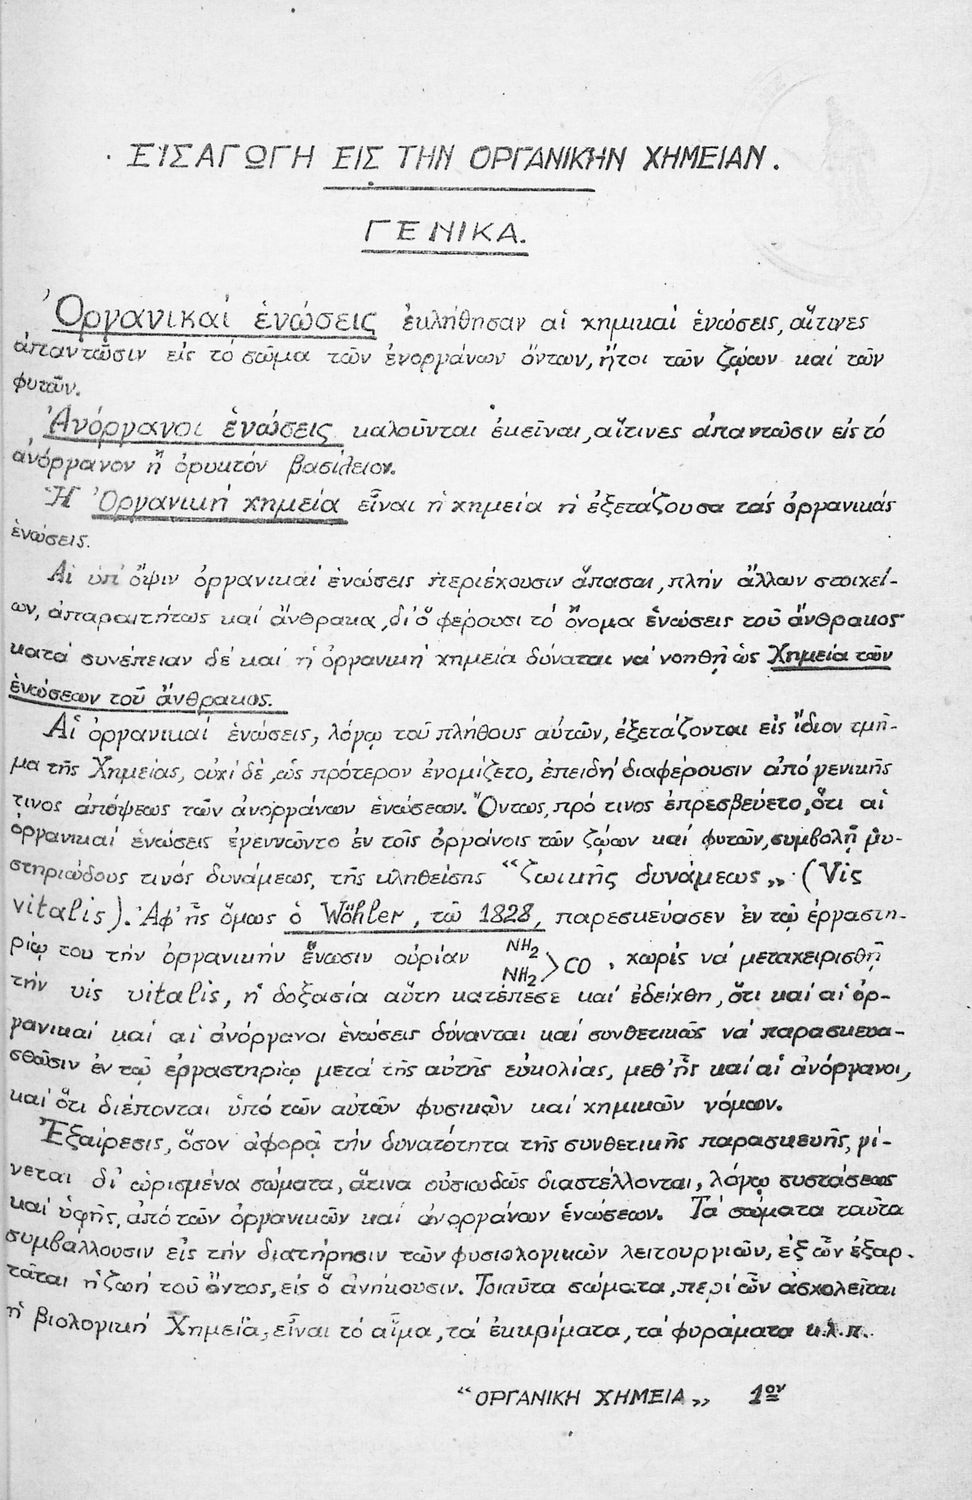 ΕἸΣΑΓΩΓΗ ΕΙΣ ΤΗΝ ΟΡΓΑΝΙΚΗΝ ΧΗΜΕΙΑΝ.
ΓΕΝΙΚΑ.
Ὀργανικαί ἑνώσεις ἐκλήθησαν αἱ χημικαί ἑνώσεις, αἵτινες
ἀπαντῶσιν εἰς τό σῶμα τῶν ἐνοργάνων ὄντων, ἤτοι τῶν ζῴων καί τῶν
φυτῶν.
Ἀνόργανοι ἑνώσεις καλοῦνται ἐκεῖναι, αἵτινες ἀπαντῶσιν εἰς τό
ἀνόργανον ἤ ὀρυκτόν βασίλειον.
Ἡ Ὀργανική χημεία εἶναι ἡ χημεία ἡ ἐξετάζουσα τάς ὀργανικάς
ἑνώσεις.
Αἱ ὑπ' ὄψιν ὀργανικαί ἑνώσεις περιέχουσιν ἅπασαι, πλήν ἄλλων στοιχεί-
ων, ἀπαραιτήτως καί ἄνθρακα, δι' ὅ φέρουσι τό ὄνομα ἑνώσεις τοῦ ἄνθρακος
κατά συνέπειαν δέ καί ἡ ὀργανική χημεία δύναται νά νοηθῇ ὡς Χημεία τῶν
ἑνώσεων τοῦ ἄνθρακος.
Αἱ ὀργανικαί ἑνώσεις, λόγῳ τοῦ πλήθους αὐτῶν, ἐξετάζονται εἰς ἴδιον τμῆ-
μα τῆς Χημείας, οὐχί δέ, ὡς πρότερον ἐνομίζετο, ἐπειδή διαφέρουσιν ἀπό γενικῆς
τινος ἀπόψεως τῶν ἀνοργάνων ἑνώσεων. Ὄντως, πρό τινος ἐπρεσβεύετο, ὅτι αἱ
ὀργανικαί ἑνώσεις ἐγεννῶντο ἐν τοῖς ὀργάνοις τῶν ζῴων καί φυτῶν, συμβολῇ μυ-
στηριώδους τινός δυνάμεως, τῆς κληθείσης "ζωικῆς δυνάμεως" (Vis
vitalis). Ἀφ' ἧς ὅμως ὁ Wöhler, τῷ 1828, παρεσκεύασεν ἐν τῷ ἐργαστη-
ρίῳ του τήν ὀργανικήν ἕνωσιν οὐρίαν NH2 NH2 > CO, χωρίς νά μεταχειρισθῇ
τήν vis vitalis, ἡ δοξασία αὕτη κατέπεσε καί ἐδείχθη, ὅτι καί αἱ ὀρ-
γανικαί καί αἱ ἀνόργανοι ἑνώσεις δύνανται καί συνθετικῶς νά παρασκευα-
σθῶσιν ἐν τῷ ἐργαστηρίῳ μετά τῆς αὐτῆς εὐκολίας, μεθ' ἧς καί αἱ ἀνόργανοι,
καί ὅτι διέπονται ὑπό τῶν αὐτῶν φυσικῶν καί χημικῶν νόμων.
Ἐξαίρεσις, ὅσον ἀφορᾷ τήν δυνατότητα τῆς συνθετικῆς παρασκευῆς, γί-
νεται δι' ὡρισμένα σώματα, ἅτινα οὐσιωδῶς διαστέλλονται, λόγῳ συστάσεως
καί ὑφῆς, ἀπό τῶν ὀργανικῶν καί ἀνοργάνων ἑνώσεων. Τά σώματα ταῦτα
συμβάλλουσιν εἰς τήν διατήρησιν τῶν φυσιολογικῶν λειτουργιῶν, ἐξ ὧν ἐξαρ-
τᾶται ἡ ζωή τοῦ ὄντος, εἰς ὅ ἀνήκουσιν. Τοιαῦτα σώματα, περί ὧν ἀσχολεῖται
ἡ βιολογική Χημεία, εἶναι τό αἷμα, τά ἐκκρίματα, τά φυράματα κ.λ.π.
"ΟΡΓΑΝΙΚΗ ΧΗΜΕΙΑ" 1ον